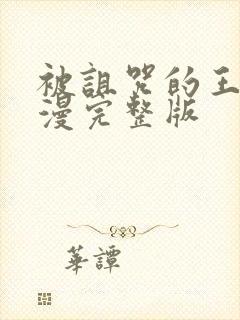 被詛咒的王
漫完整版
華譚